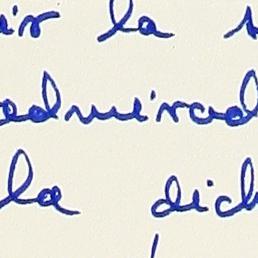 ir la
admirad
la dich